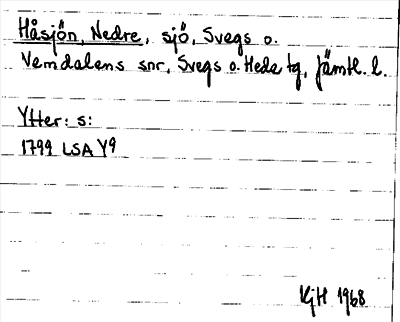 Håsjön, Nedre, sjö, Svegs o.
Vemdalens snr, Svegs o. Hede tg, Jämtl. l.
Ytter: s:
1799 LSA Y9
KjH 1968